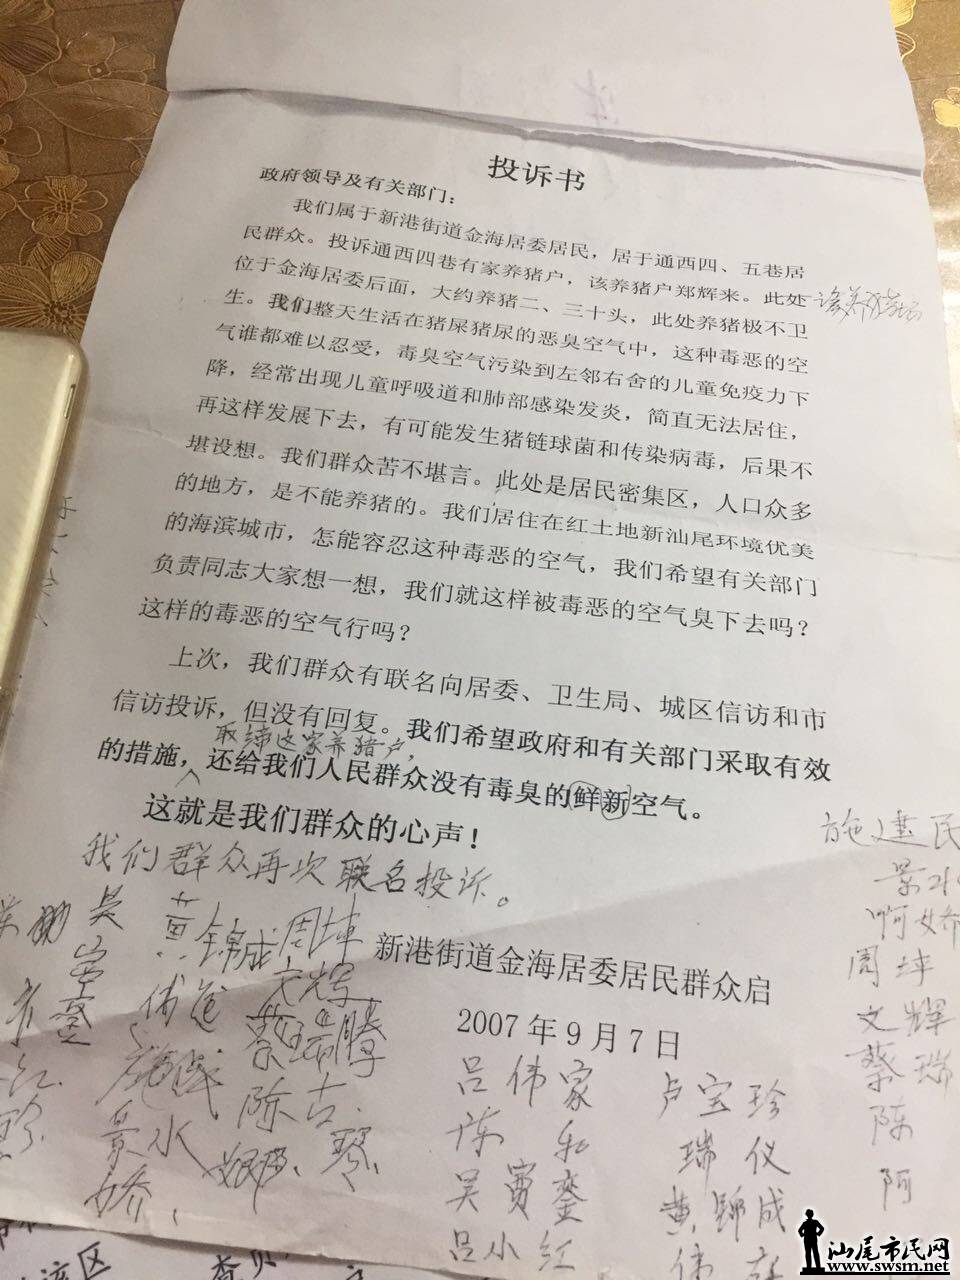 投诉书
政府领导及有关部门：
我们属于新港街道金海居委居民，居于通西四、五巷居
民群众。投诉通西四巷有家养猪户，该养猪户郑辉来。此处
位于金海居委后面，大约养猪二、三十头，此处养猪极不卫
生。我们整天生活在猪屎猪尿的恶臭空气中，这种毒恶的空
气谁都难以忍受，毒臭空气污染到左邻右舍的儿童免疫力下
降，经常出现儿童呼吸道和肺部感染发炎，简直无法居住，
再这样发展下去，有可能发生猪链球菌和传染病毒，后果不
堪设想。我们群众苦不堪言。此处是居民密集区，人口众多
的地方，是不能养猪的。我们居住在红土地新汕尾环境优美
的海滨城市，怎能容忍这种毒恶的空气，我们希望有关部门
负责同志大家想一想，我们就这样被毒恶的空气臭下去吗？
这样的毒恶的空气行吗？
上次，我们群众有联名向居委、卫生局、城区信访和市
信访投诉，但没有回复。我们希望政府和有关部门采取有效
取缔这家养猪户，
的措施，还给我们人民群众没有毒臭的鲜新空气。
这就是我们群众的心声！
我们群众再次联名投诉。
新港街道金海居委居民群众启
2007年9月7日
黄锦成
周坤
文辉
蔡瑞腾
陈古
景水
吕伟家
陈和
吴宝銮
吕小红
卢宝珍
瑞仪
黄锦成
施建民
景水
啊娇
周坤
文辉
蔡瑞
陈
阿
汕尾市民网
www.swsm.net